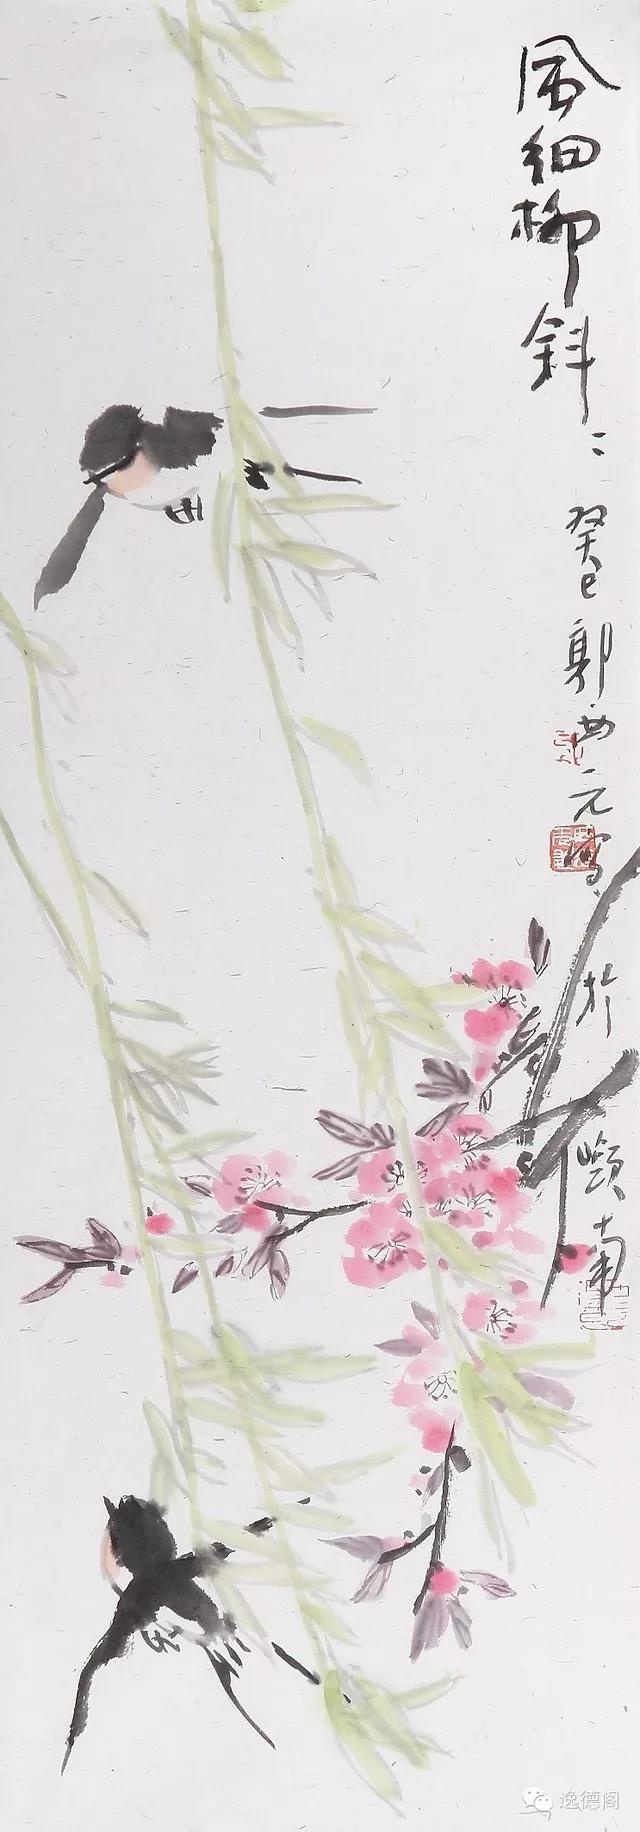 风细柳斜斜 癸巳 郭西元写 于 岭南
逸德阁